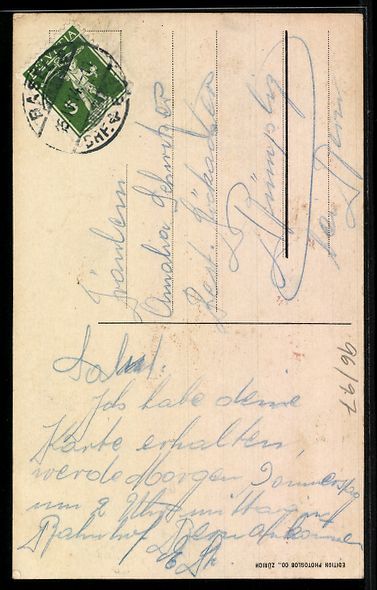 HELVETIA
BASEL
BHF.
Fräulein
Amalia Schnitzer
Rest. Bückacker
Bümpliz
bei Bern
96/97
Salut.
Ich habe deine
Karte erhalten,
werde Morgen Donnerstag
um 2 Uhr mittag
Bahnhof Bern ankommen
EDITION PHOTOGLOB CO., ZÜRICH